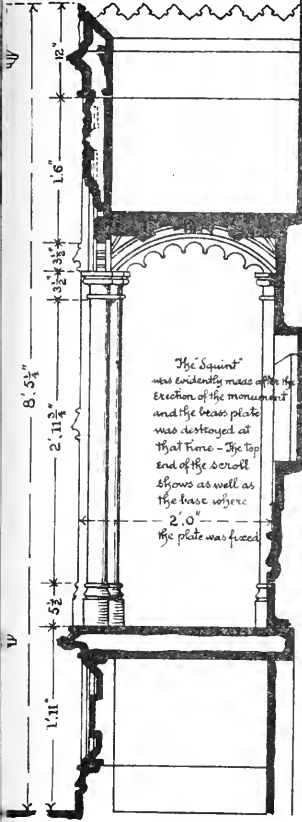 12"
1'.6"
3½"
3½"
8'.5¼"
2'.11¾"
5½"
1'.11"
The "Squint"
was evidently made after the
erection of the monument
and the brass plate
was destroyed at
that time – The top
end of the scroll
shows as well as
the base where
2'.0"
the plate was fixed